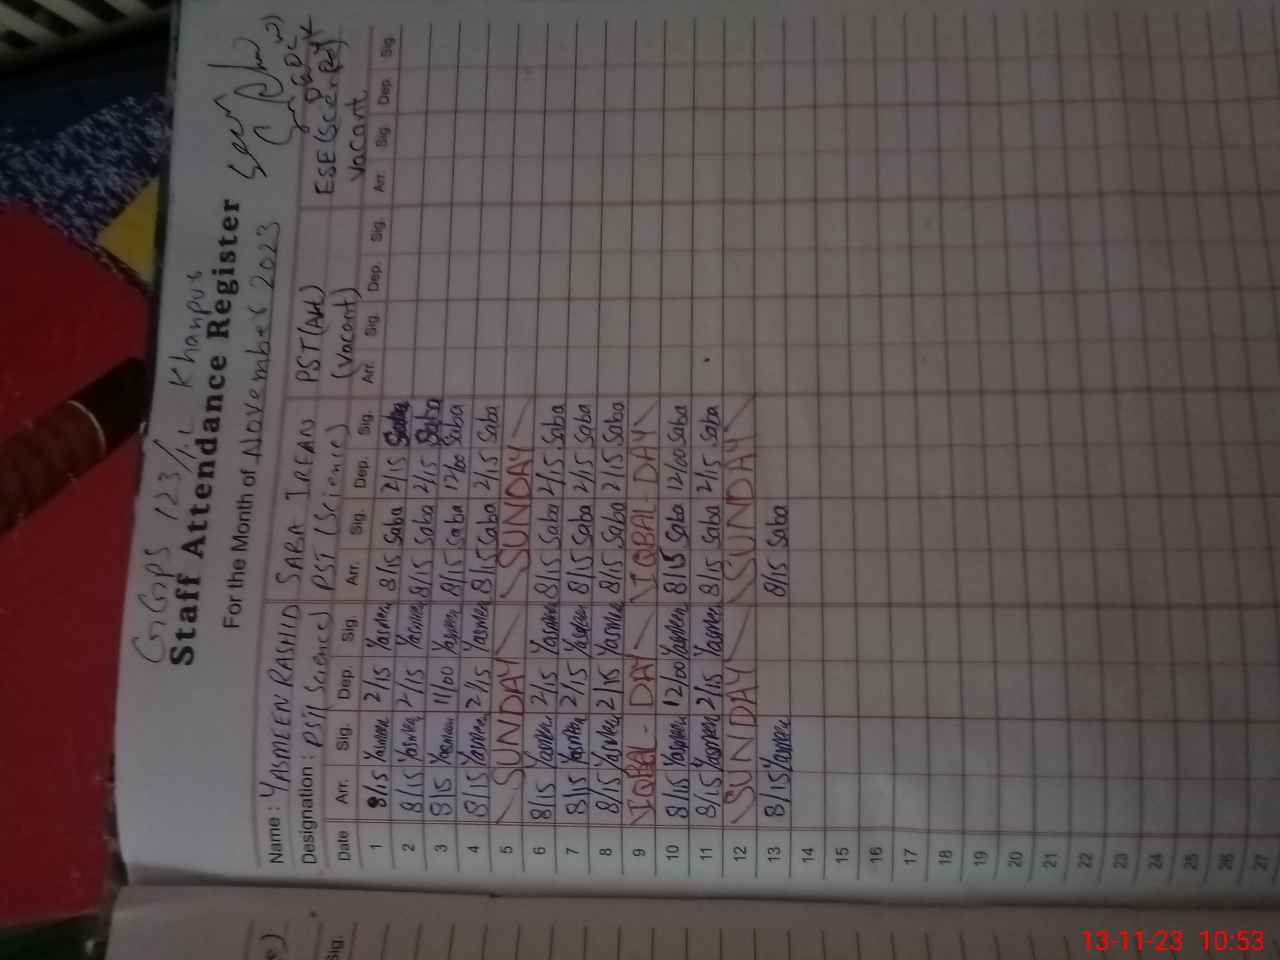 GGPS 123/1L Khanpur
Staff Attendance Register
For the Month of November 2023
Name : YASMEEN RASHID SABA IRFAN PST (Art) ESE (Sci
Designation : PST( Science) PST (Science) (Vacant) Vacant
Date Arr. Sig. Dep. Sig. Arr. Sig. Dep. Sig. Arr. Sig. Dep. Sig. Arr. Sig. Dep. Sig.
1 8/15 Yasmeen 2/15 Yasmeen 8/15 Saba 2/15 Saba
2 8/15 Yasmeen 2/15 Yasmeen 8/15 Saba 2/15 Saba
3 8/15 Yasmeen 11/00 Yasmeen 8/15 Saba 12/00 Saba
4 8/15 Yasmeen 2/15 Yasmeen 8/15 Saba 2/15 Saba
5 SUNDAY SUNDAY
6 8/15 Yasmeen 2/15 Yasmeen 8/15 Saba 2/15 Saba
7 8/15 Yasmeen 2/15 Yasmeen 8/15 Saba 2/15 Saba
8 8/15 Yasmeen 2/15 Yasmeen 8/15 Saba 2/15 Saba
9 IQBAL - DAY IQBAL - DAY
10 8/15 Yasmeen 12/00 Yasmeen 8/15 Saba 12/00 Saba
11 8/15 Yasmeen 2/15 Yasmeen 8/15 Saba 2/15 Saba
12 SUNDAY SUNDAY
13 8/15 Yasmeen 8/15 Saba
14
15
16
17
18
19
20
21
22
23
24
25
26
27
e)
Sig.
13-11-23 10:53